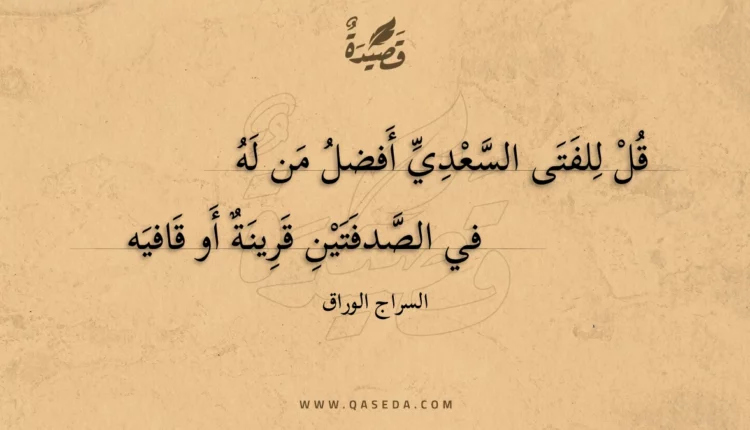 قَصِيْدَةٌ
قُلْ لِلفَتَى السَّعْدِيِّ أَفضلُ مَن لَهُ
في الصَّدفَتَيْنِ قَرِينَةٌ أَو قَافيَه
السراج الوراق
WWW.QASEDA.COM